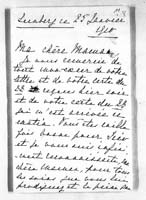 25 Janvier
1910
Ma chère Maman
Je vous remercie de
tout mon cœur de votre
lettre et de votre carte
du 22 reçues hier soir
et de votre carte du 23
qui m'est arrivée ce
matin. Vous êtes mille
fois bonne pour
et je vous suis
reconnaissante, ma
chère Maman, pour tous
les soins que vous lui
prodiguez et la peine